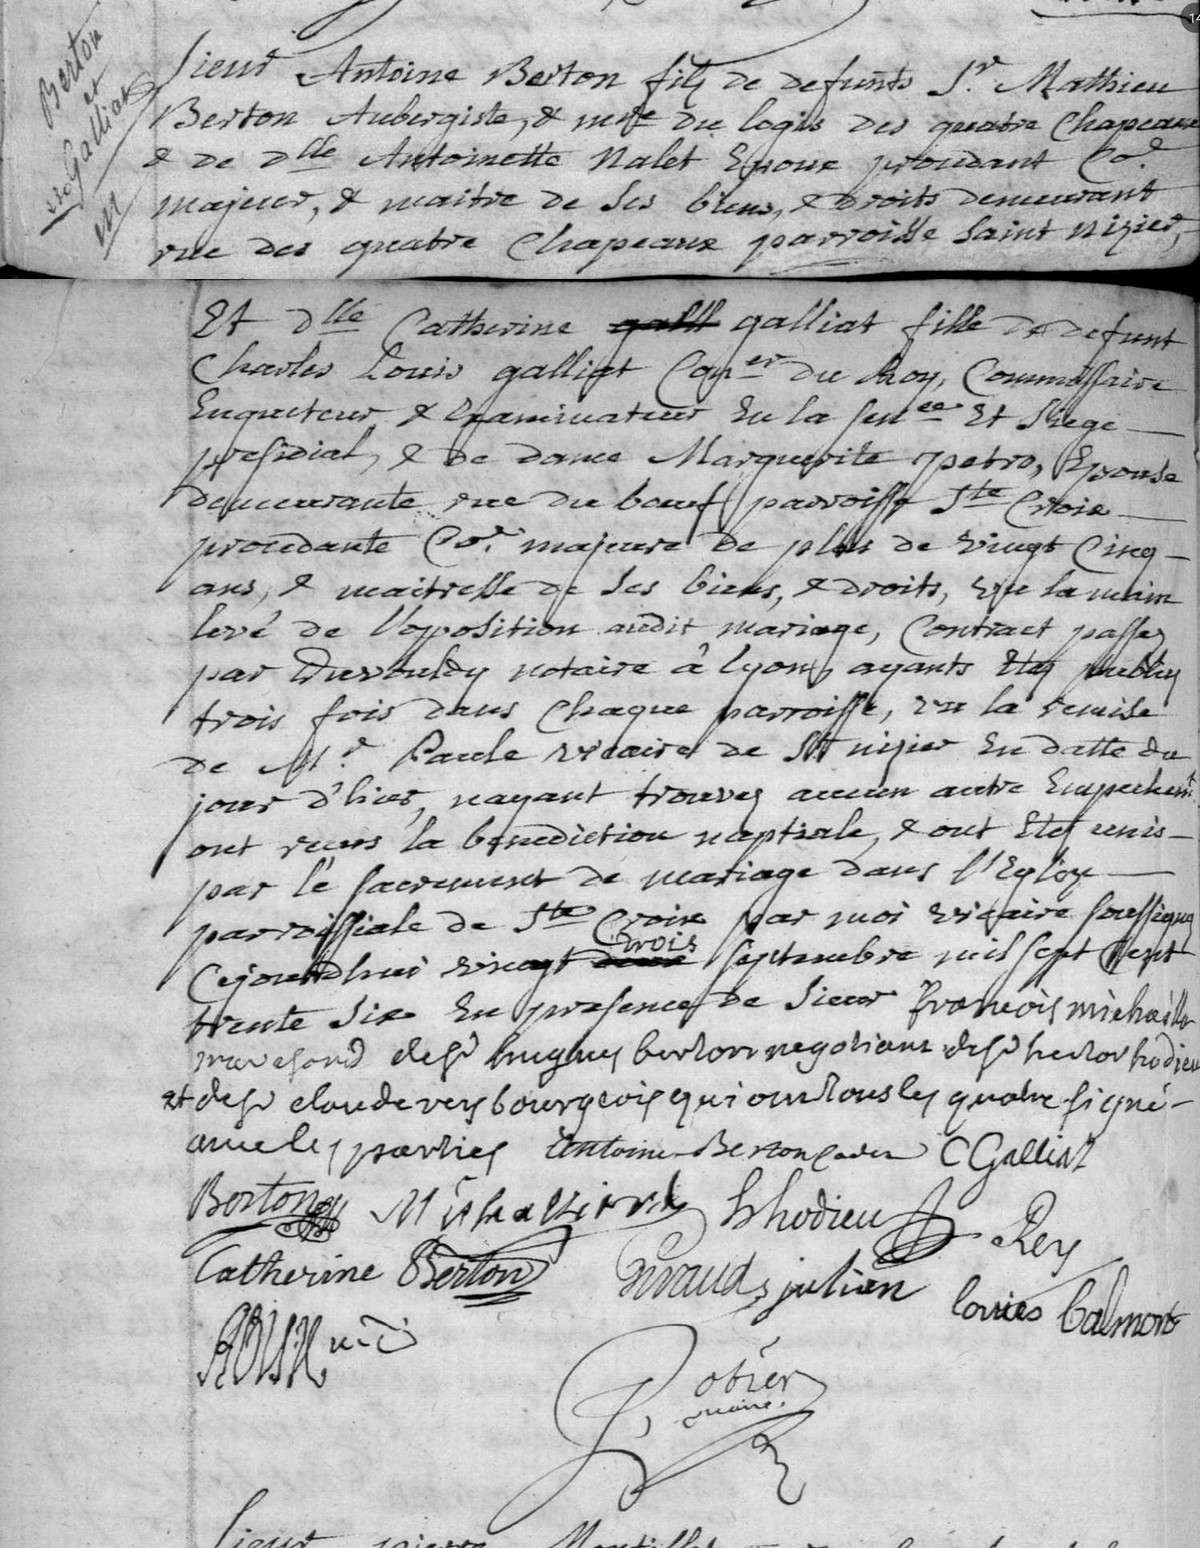 Berton
et
Galliat
m
Sieur Antoine Berton fils de defunts Sr. Mathieu
Berton Aubergiste, & mtre du logis des quatre Chapeaux
& de dlle Antoinette Nalet Epoux procedant Coe.
majeur, & maitre de ses biens, & droits demeurant
rue des quatre Chapeaux parroisse saint nizier,
Et dlle Catherine galliat fille de defunt
Charles Louis galliat Coner du Roy, Commissaire
Enqueteur & Examinateur En la senee Et siege
presidial, & de dame Marguerite petro, Epouse
demeurante rue du boeuf parroisse Ste Croix
procedante Coe. majeure de plus de vingt Cinq
ans, & maitresse de ses biens, & droits, vu la main
levé de l'opposition audit mariage, Contract passez
par notaire à lyon, ayants Etez publiez
trois fois dans Chaque parroisse, vu la remise
de Mr. Paule vicaire de St nizier En datte du
jour d'hier, nayant trouvez aucun autre Empechemt.
ont recus la benediction nuptiale, & ont Etez unis
par le sacrement de mariage dans l'Eglize
parroissiale de Ste Croix par moi vicaire soussigné
Cejourdhui vingt trois septembre mil sept Cent
trente six En presence de sieur françois
de sr hugues berton negotiant de sr hector hodieu
et de sr claude rey bourgeois qui ont tous les quatre signé
avec les parties Antoine Berton C Galliat
Berton hhodieu Rey
Catherine Berton Giraud julien louis Calmont